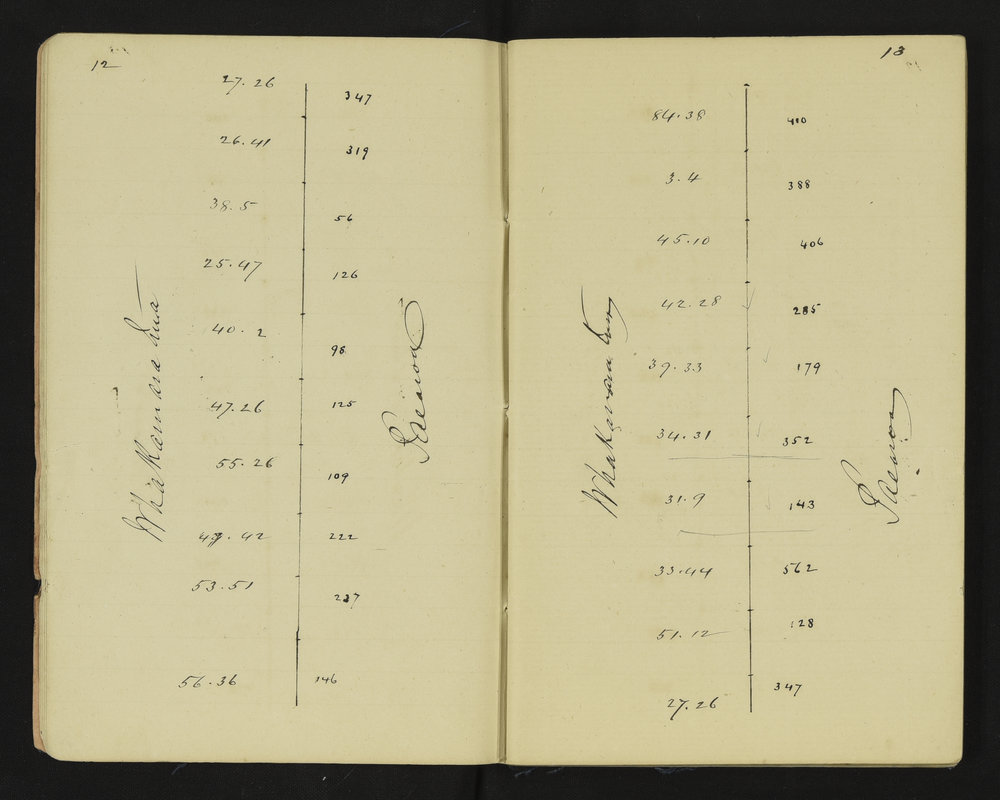 12
27.26 347
26.41 319
38.5 56
25.47 126
40.2 98
47.26 125
55.26 109
49.42 222
53.51 237
56.36 146
13
84.38 410
3.4 388
45.10 406
42.28 285
39.33 179
34.31 352
31.9 143
33.44 562
51.12 128
27.26 347